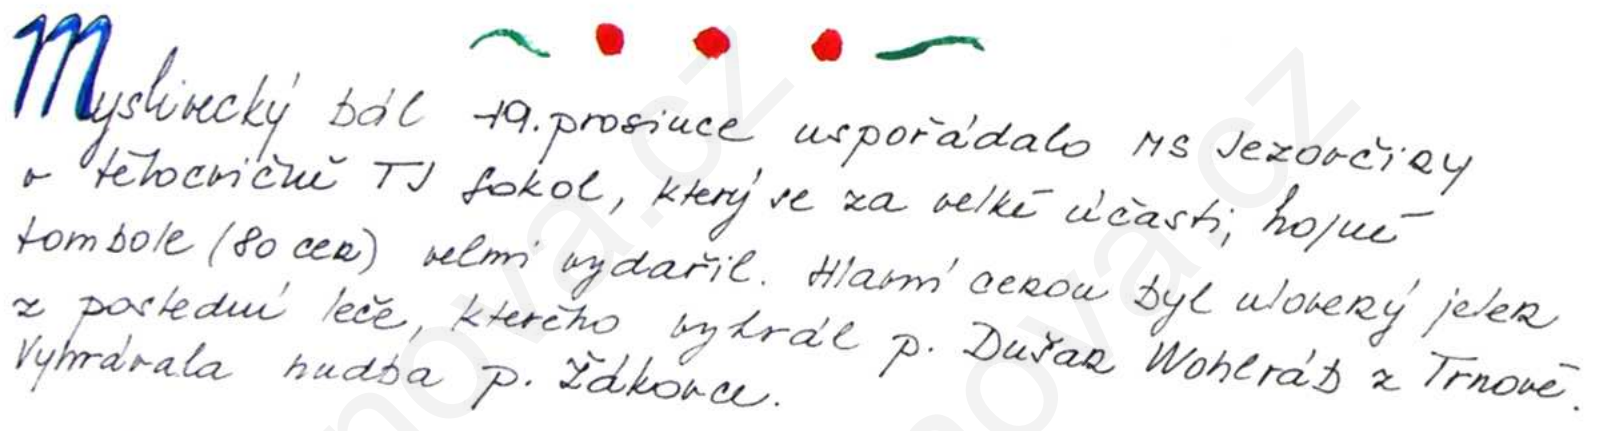 Myslivecký bál 19. prosince uspořádalo MS Jezovčiny
v tělocvičně TJ Sokol, který se za velké účasti, hojné
tombole (80 cen) velmi vydařil. Hlavní cenou byl ulovený jelen
z poslední leče, kterého vyhrál p. Dušan Wohlráb z Trnové.
Vyhrávala hudba p. Žákovce.